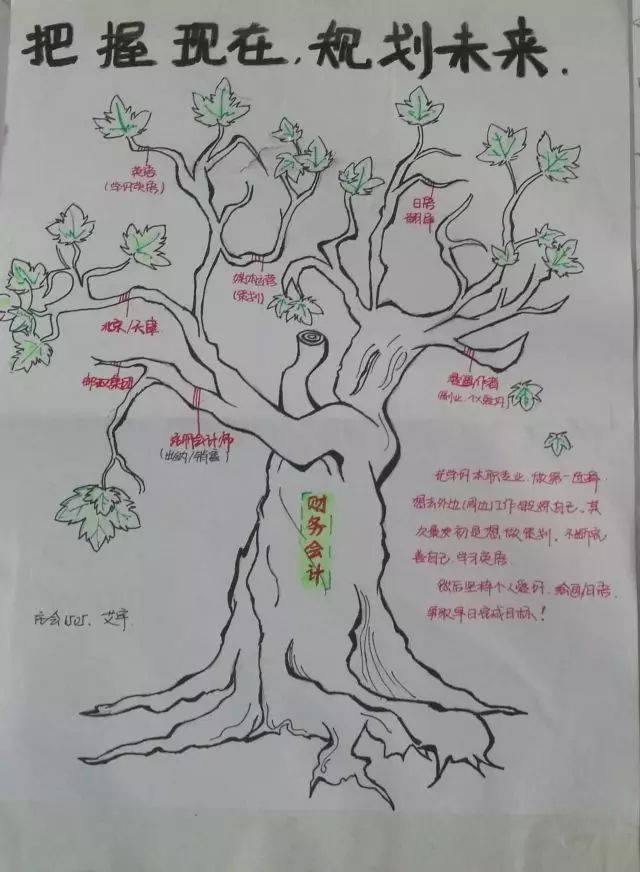 把握现在,规划未来.
英语
(学好英语)
日语
翻译
媒体运营
(策划)
北京/天津
邮政集团
漫画作者
(副业.个人爱好)
注册会计师
(出纳/销售)
财务会计
先学好本职专业.做第一选择
想去外边(周边)工作锻炼自己.其
次最初是想做策划.不断完
善自己.学习英语.
然后坚持个人爱好.绘画/日语.
争取早日完成目标!